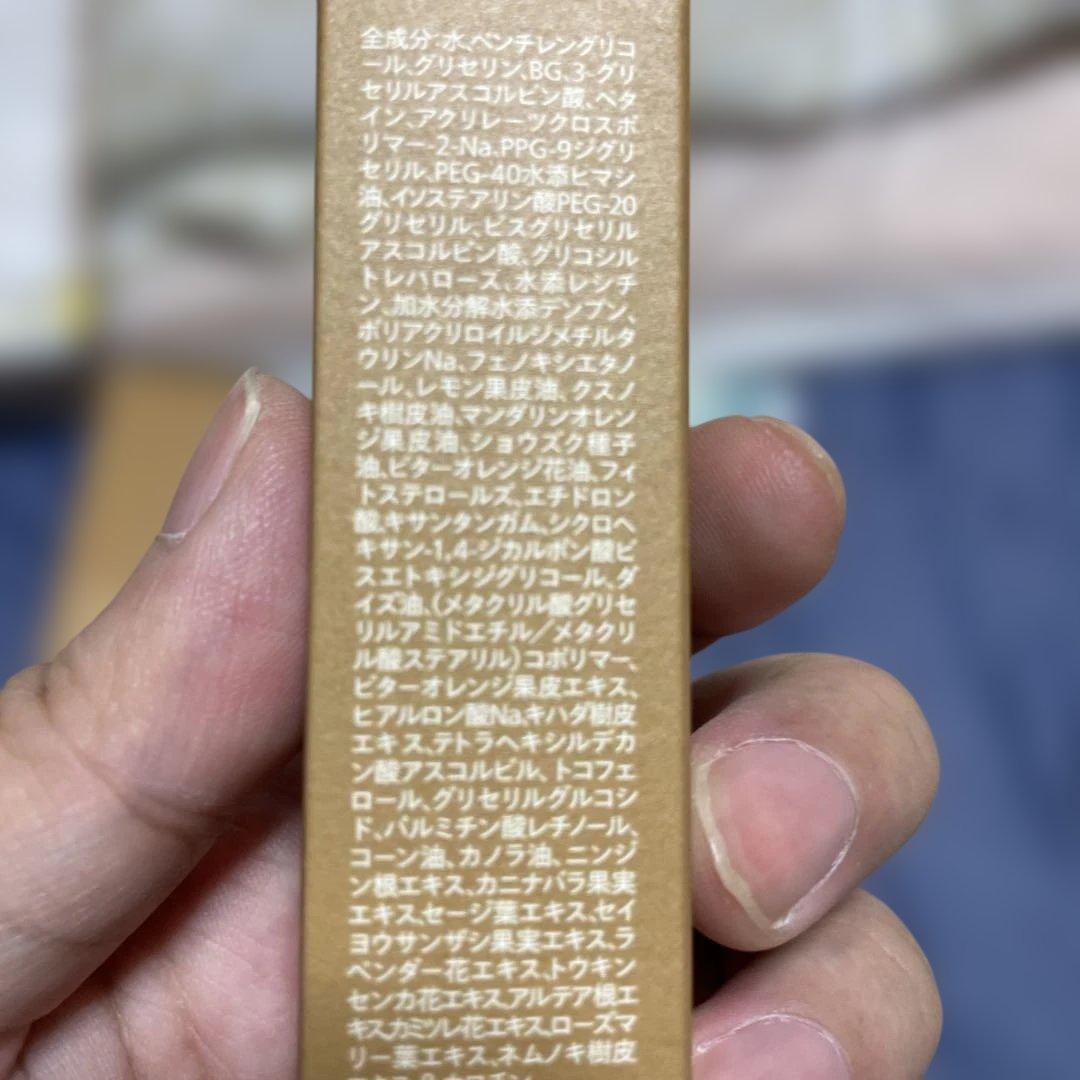 全成分:水、ペンチレングリコ
ール、グリセリン、BG、3-グリ
セリルアスコルビン酸、ベタ
イン、アクリレーツクロスポ
リマー-2-Na、PPG-9ジグリ
セリル、PEG-40水添ヒマシ
油、イソステアリン酸PEG-20
グリセリル、ビスグリセリル
アスコルビン酸、グリコシル
トレハロース、水添レシチ
ン、加水分解水添デンプン、
ポリアクリロイルジメチルタ
ウリンNa、フェノキシエタノ
ール、レモン果皮油、クスノ
キ樹皮油、マンダリンオレン
ジ果皮油、ショウズク種子
油、ビターオレンジ花油、フィ
トステロールズ、エチドロン
酸、キサンタンガム、シクロヘ
キサン-1,4-ジカルボン酸ビ
スエトキシジグリコール、ダ
イズ油、(メタクリル酸グリセ
リルアミドエチル/メタクリ
ル酸ステアリル)コポリマー、
ビターオレンジ果皮エキス、
ヒアルロン酸Na、キハダ樹皮
エキス、テトラヘキシルデカ
ン酸アスコルビル、トコフェ
ロール、グリセリルグルコシ
ド、パルミチン酸レチノール、
コーン油、カノラ油、ニンジ
ン根エキス、カニナバラ果実
エキス、セージ葉エキス、セイ
ヨウサンザシ果実エキス、ラ
ベンダー花エキス、トウキン
センカ花エキス、アルテア根エ
キス、カミツレ花エキス、ローズマ
リー葉エキス、ネムノキ樹皮